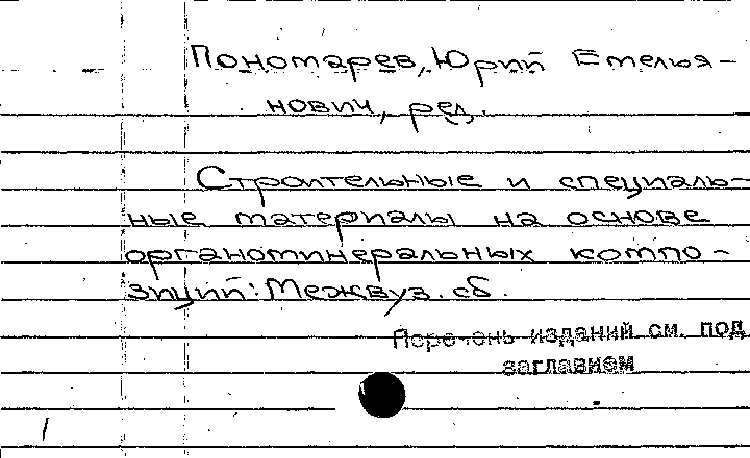 Пономарев, Юрий Емелья-
нович, ред.
Строительные и специаль-
ные материалы на основе
органоминеральных компо-
зиций: Межвуз. сб.
Перечень изданий см. под
заглавием